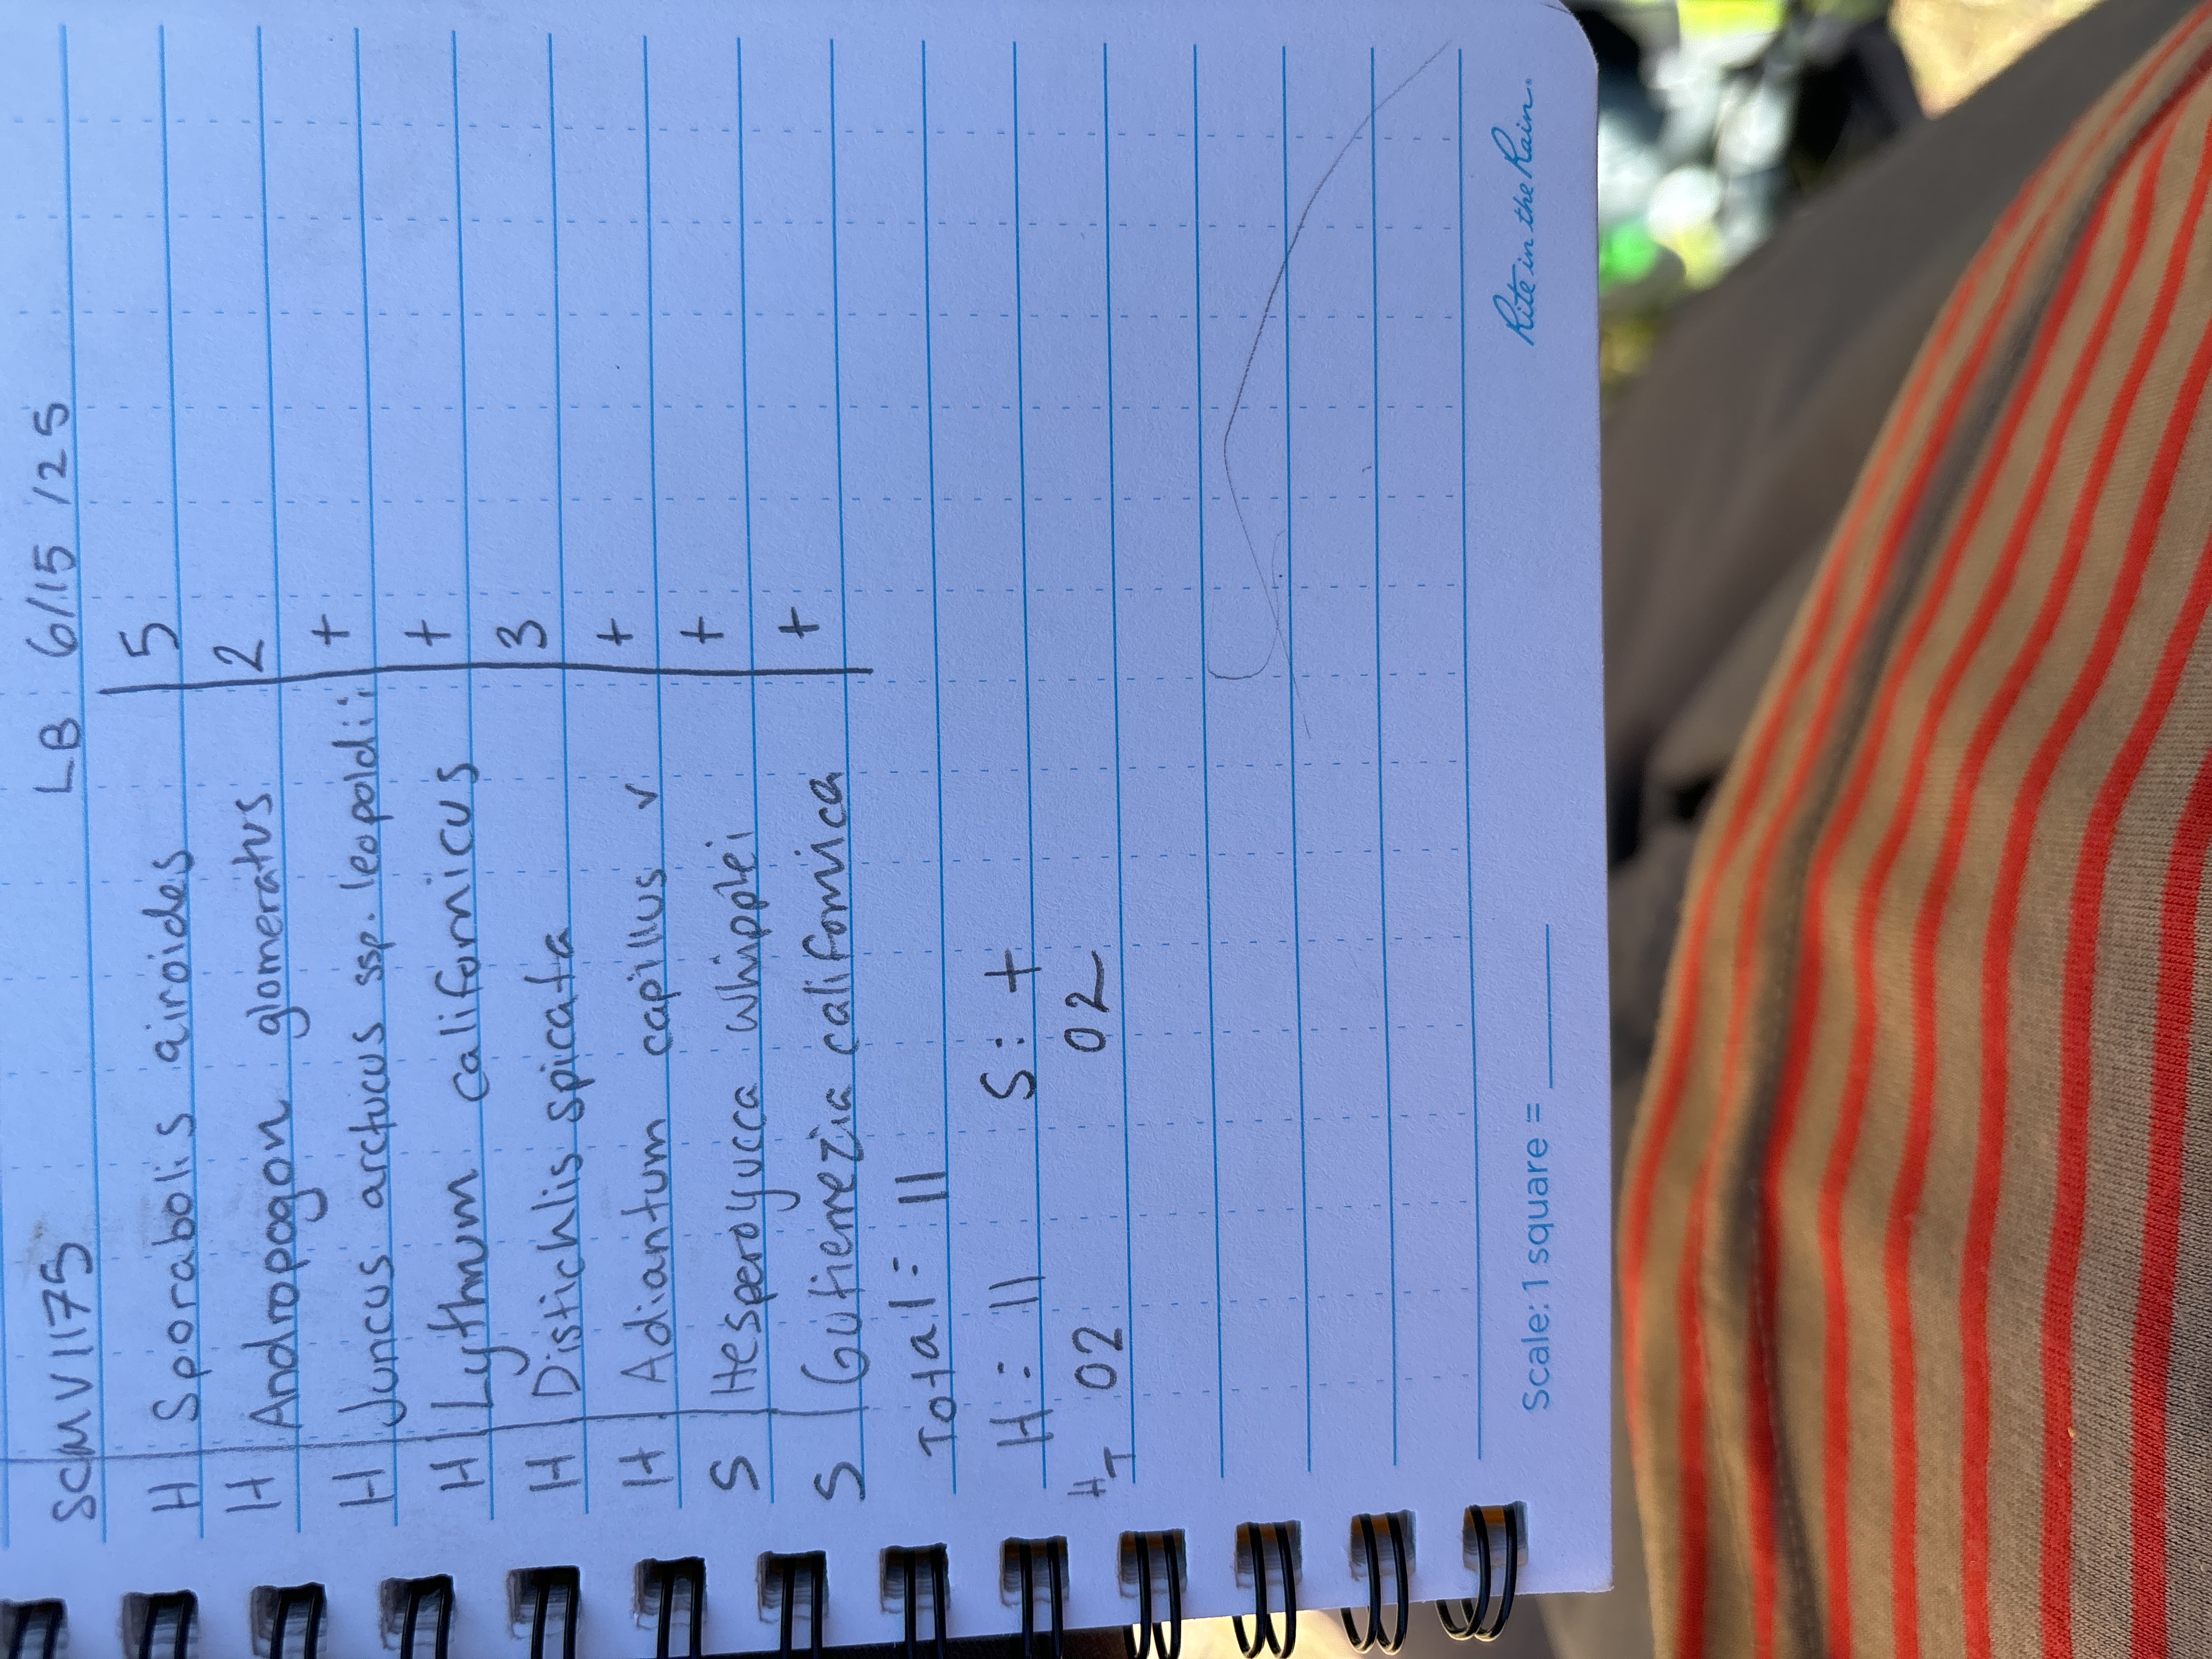 SCMV1175 LB 6/15/25
H Sporabolis airoides 5
H Andropogon glomeratus 2
H Juncus arctucus ssp. leopoldii +
H Lythmum californicus +
H Distichlis spicata 3
H Adiantum capillus v +
S Hesperoyucca whipplei +
S Gutierrezia californica +
Total: 11
H: 11 S: +
HT 02 02
Scale: 1 square = ______ Rite in the Rain.